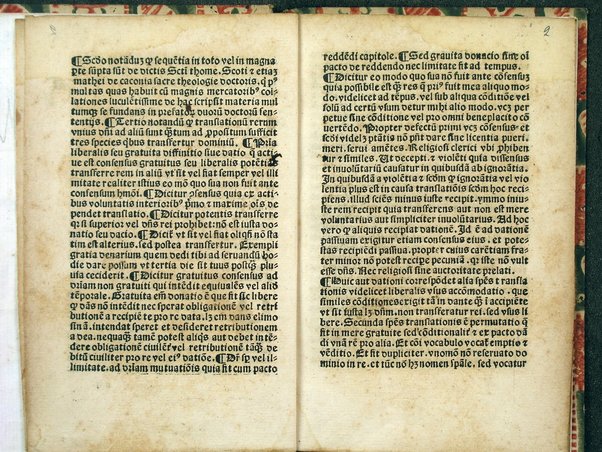 2
¶ Scd̄o notādūʒ ꝙ seq̄ūētia in toto vel in magna
pte sūpta sūt de dictis Scti thome. Scoti ⁊ etiaʒ
mathei de caconia sacre theologie doctoris. q̄ p̄
multas quas habuit cū magnis mercatorib⁹ col
lationes luculētissime de hac scripsit materia mul
tumqʒ se fundans in prefatoꝝ duorū doctorū sen
tentijs. ¶ Tertio notandū ꝙ translationū rerum
vnius dn̄i ad aliū sunt q̄tum ad ꝓpositum sufficit
tres species q̄bus transfertur dominiū. ¶ Pria
liberalis seu gratuita diffinitio siue datio q̄ acti
ue est consensus gratuitus seu liberalis potentis
transferre rem in aliū vt sit vel fiat semper vel illi
mitate realiter istius eo mō quo sua non fuit ante
consensum hmōi. ¶ Dicitur sensus quia ex acti
bus voluntatis interiorib⁹ p̄mo ⁊ maxime ois de
pendet translatio. ¶ Dicitur potentis transferre
qr si superior vel dn̄s rei prohibet: nō est iusta do
natio seu vacio. ¶ Dicit̄ vt sit vel fiat oliqñ nō sta
tim est alterius. sed postea transfertur. Exempli
gratia denarium quem dedi tibi ad seruandū ho
die dare possum vt tertia die sit tuus positqʒ plu
uia ceciderit. ¶ Dicitur gratuitus consensus ad
driam non gratuiti qui intēdit equiualēs vel aliō
tēporale. Gratuita em̄ donatio ē que fit sic libere
ꝙ dās nō intēdit nec sperat obligationē vel retri
butionē a recipiēte pro re data. lʒ em dans elimo
sinā. intendat speret et desideret retributionem
a deo. nequaqʒ tamē potest aliqs aut debet intē
dere obligationē ciuilēvel retributionē tāqʒ de
bitū ciuiliter pro re vel ei⁹ datiōe. ¶ Dr̄ sꝑ vel il-
limitate. ad driam mutuatiōis quia fit cum pacto
2
reddēdi capitole. ¶ Sed grauita donacio sine oī
pacto de reddendo nec limitate fit ad tempus.
¶ Dicitur eo modo quo sua nō fuit ante cōsensum
quia possibile est q̄ res q̄ p̄i⁹ fuit mea aliquo mo-
do. videlicet ad tēpus. vel sub aliqua cōditiōe vel
solū ad certū vsum detur mihi alio modo. vcʒ per
petue sine cōditione vel pro omni beneplacito cō
uertēdo. Propter defectū primi vcʒ cōsensus et
scōi videlʒ ptātis nō p̄sūt dare sine licentia pueri.
meri. serui amētes. Religiosi clerici vbi ꝓhiben
tur ⁊ similes. Ut decepti. ⁊ violēti quia dissensus
et inuolūtariū causatur in quibusdā ab ignorātia.
In quibusdā a violētia ⁊ scōm ꝙ ignorātia vel vio
lentia plus est in causa translatiōis scōm hoc reci-
piens. illud sciēs minus iuste recipit. ymmo iniu-
ste rem recipit quia transferens aut non est mere
voluntarius aut simpliciter inuolūtarius. Ad hoc
vero ꝙ aliquis recipiat dationē. Id ē ad dationē
passiuam exigitur etiam consensus eius. et pote-
stas recipiēdi passiua. ꝓpt ⁊ cuius carētiam fra-
ter minor nō potest recipe pecuniā. qr iste nō vult
esse dn̄s. Nec religiosi sine auctoritate prelati.
¶ Huic aut dationi correspōdet alia spēs ⁊ transla
tionis videlicet liberalis vsus accōmodatio. que
similes conditiones exigit tā in dante q̄ʒ ī accipiēte
vt sit iusta lʒ dn̄m. non transferatur rei. sed vsus li
bere. Secunda spēs translatiōis ē permutatio q̄
fit in mere gratuite sed cōditionalit̄ ⁊ et pacto dā
di vnā rē pro alia. Et cōi vocabulo vocat̄ emptis ⁊
vēditio. Et fit dupliciter. vnomō nō reseruato do
minio in re. et tūc nō hʒ nomen sp̄ale. sed vocatur